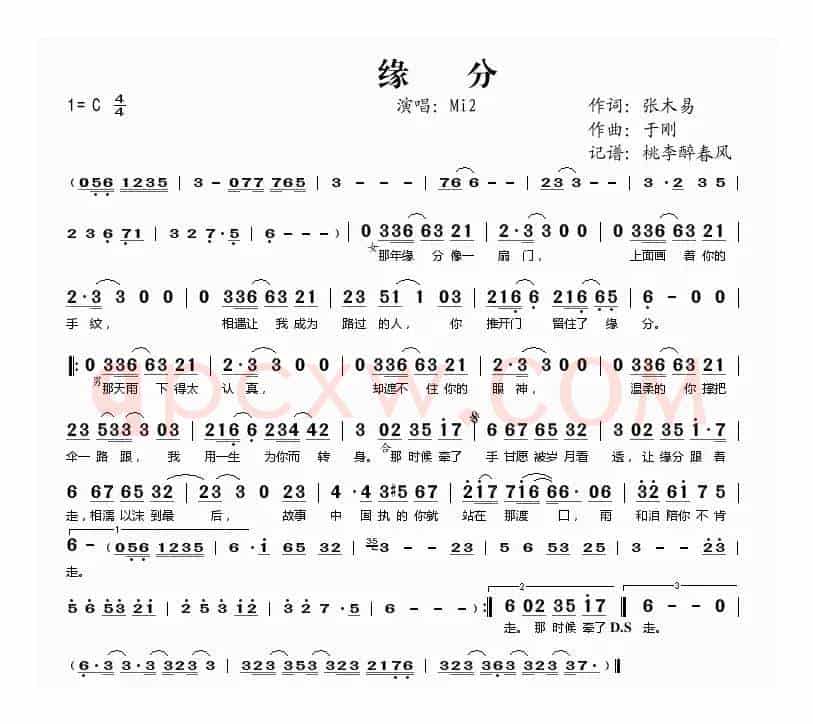 缘 分
1= C 4/4
演唱：Mi2
作词：张木易
作曲：于刚
记谱：桃李醉春风
( 056 1235 | 3 - 077 765 | 3 - - - | 76 6 - - | 23 3 - - | 3 · 2 3 5 |
2 3 6 71 | 3 2 7 · 5 | 6 - - - ) | 0 336 63 21 | 2 · 3 3 0 0 | 0 336 63 21 |
女 那年缘 分像一 扇门， 上面画 着你的
2 · 3 3 0 0 | 0 336 63 21 | 23 51 1 03 | 216 6 216 65 | 6 - 0 0 |
手纹， 相遇让 我成为 路过的人， 你 推开门 留住了缘 分。
‖: 0 336 63 21 | 2 · 3 3 0 0 | 0 336 63 21 | 2 · 3 3 0 0 | 0 336 63 21 |
男 那天雨 下得太 认真， 却遮不 住你的 眼神， 温柔的 你撑把
23 533 3 03 | 216 6 234 42 | 3 02 35 17 | 6 67 65 32 | 3 02 35 1 · 7 |
伞一路跟， 我 用一生 为你而转 身。合 那时候牵了 手甘愿被岁月看 透，让缘分跟着
6 67 65 32 | 23 3 0 23 | 4 · 4 3#5 5 | 217 716 66 · 06 | 32 61 7 5 |
走，相濡以沫到最 后， 故事 中国执的你就 站在那渡口，雨 和泪陪你不肯
1
6 - ( 056 1235 | 6 · i 65 32 | 35 3 - - 23 | 5 · 5 53 23 | 3 - - 23 |
走。
5 6 53 21 | 2 · 5 53 23 | 3 2 7 · 5 | 6 - - - ) :‖ 2 6 02 35 17 | 3 6 - - 0 |
走。那时候牵了 D.S 走。
( 6 · 3 3 · 3 3 · 3 3 · 3 | 323 353 323 2176 | 323 363 323 37 · ) ‖
qpcxw.COM